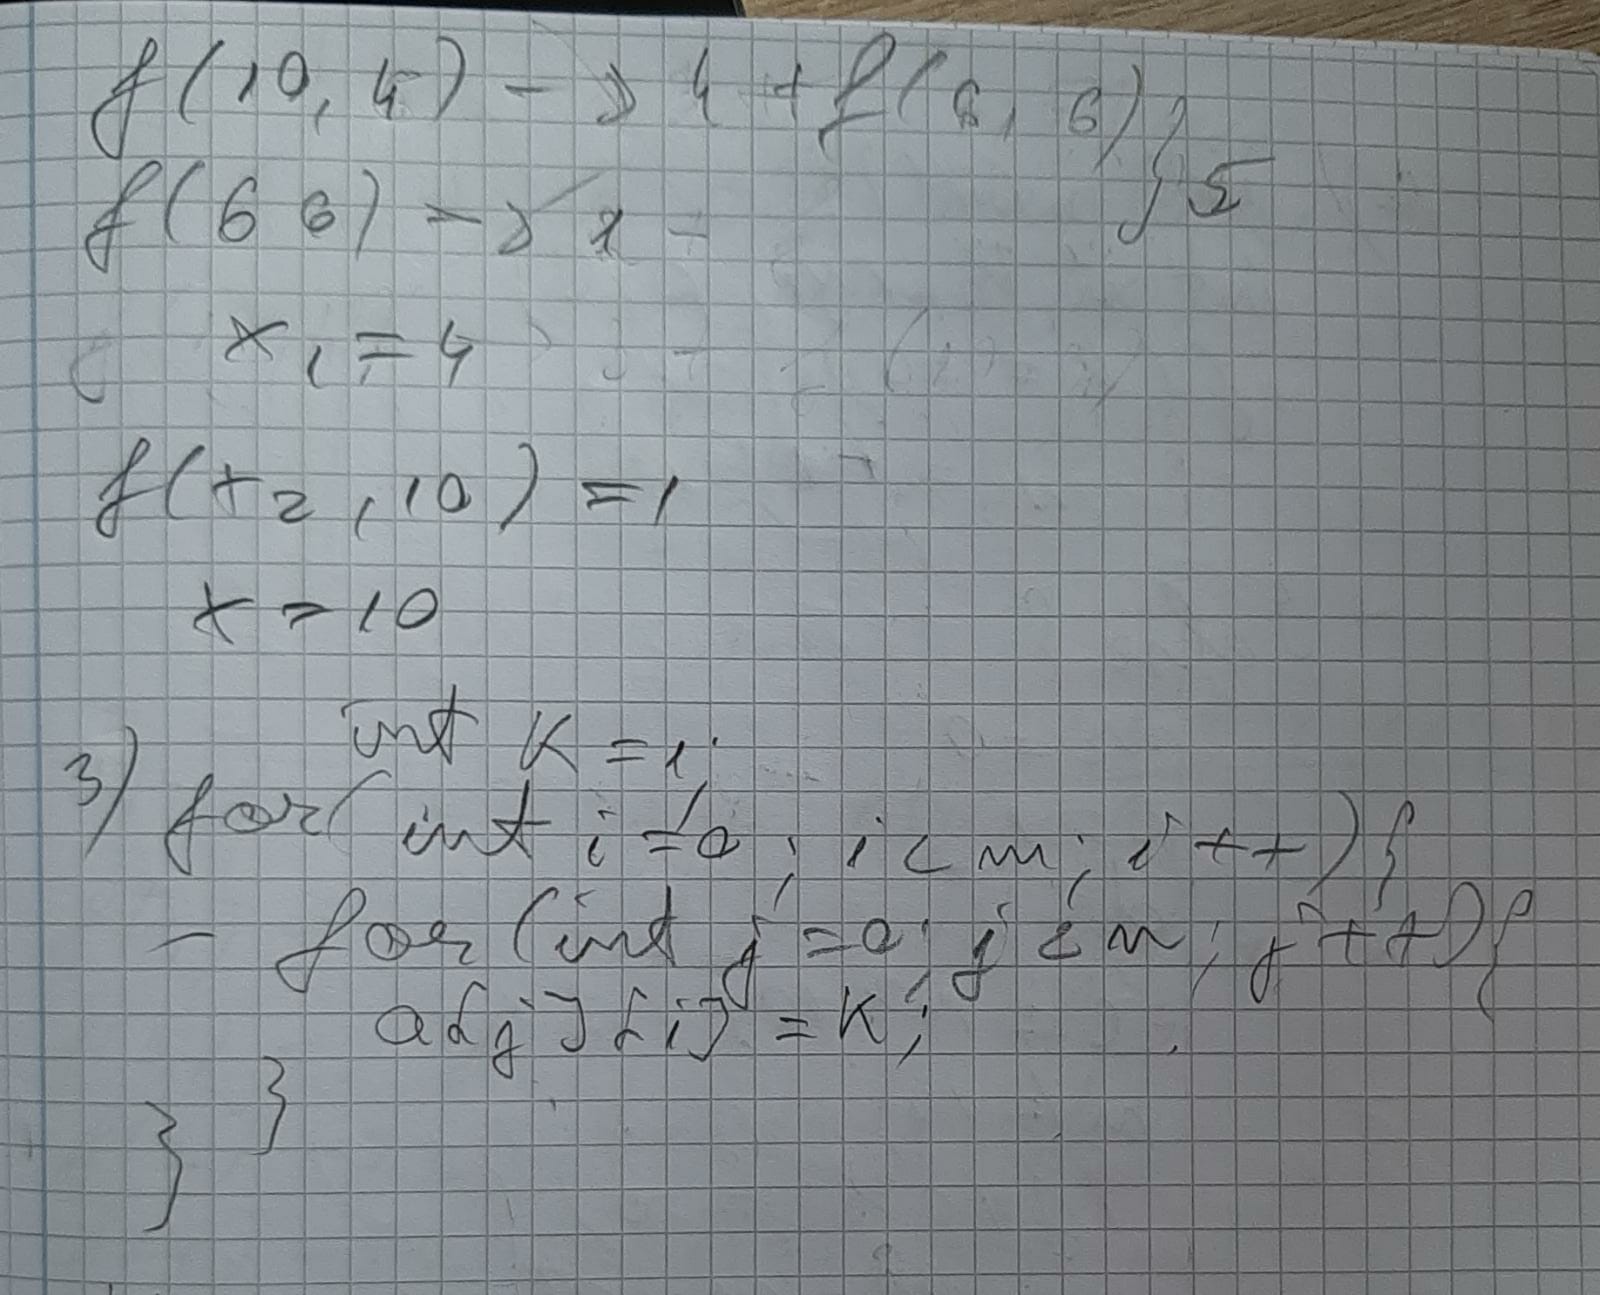 f(10, 4) -> 4 + f(6, 6) } 5
f(6 6) -> 1
x1 = 4
f(x2, 10) = 1
x = 10
int k = 1;
3) for(int i=0; i<m; i++){
- for(int j=0; j<n; j++){
a[j][i] = k;
}
}